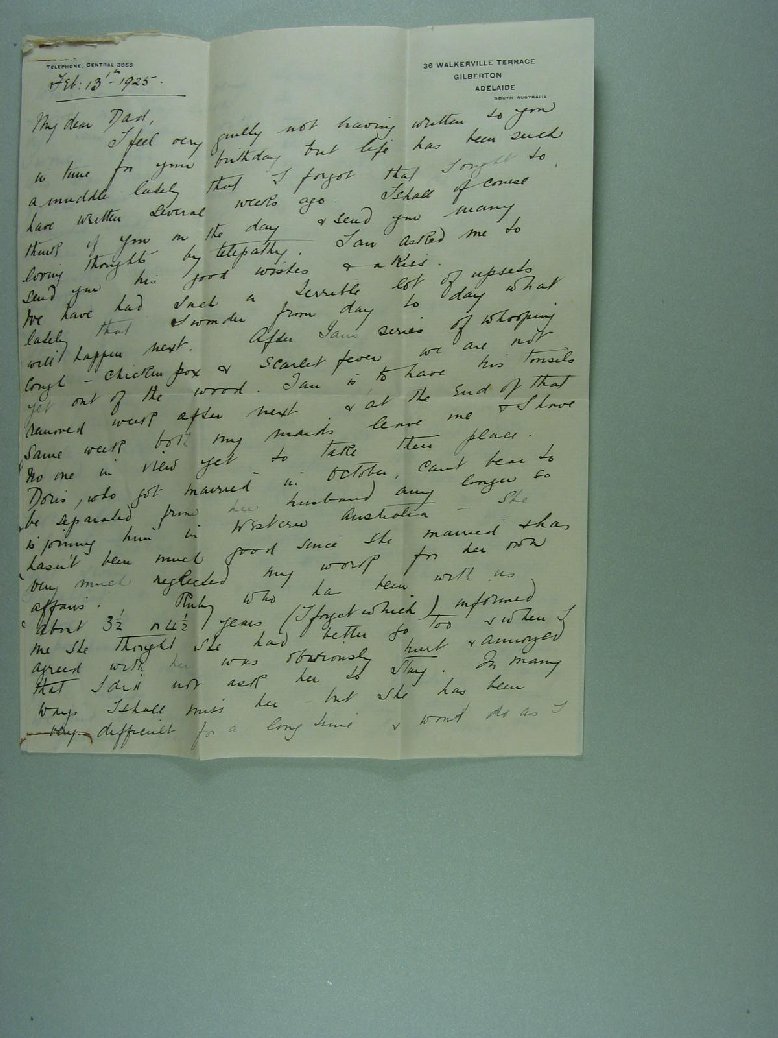 TELEPHONE, CENTRAL 3853
36 WALKERVILLE TERRACE
GILBERTON
ADELAIDE
SOUTH AUSTRALIA
Feb: 13th 1925.
My dear Dad,
I feel very guilty not having written to you
in time for your birthday but life has been such
a muddle lately that I forgot that I ought to
have written several weeks ago. I shall of course
think of you on the day & send you many
loving thoughts by telepathy. Ian asked me to
send you his good wishes & a kiss.
We have had such a terrible lot of upsets
lately that I wonder from day to day what
will happen next. After Ian's series of whooping
cough - chicken pox & scarlet fever we are not
yet out of the wood. Ian is to have his tonsils
removed week after next & at the end of that
same week both my maids leave me & I have
no one in view yet to take their place.
Doris, who got married in October, can't bear to
be separated from her husband any longer so
is joining him in Western Australia - She
hasn't been much good since she married & has
very much neglected my work for her own
affairs. Ruby who has been with us
about 3½ or 4½ years (I forget which) informed
me she thought she had better go too & when I
agreed with her was obviously hurt & annoyed
that I did not ask her to stay. In many
ways I shall miss her - but she has been
very difficult for a long time & won't do as I